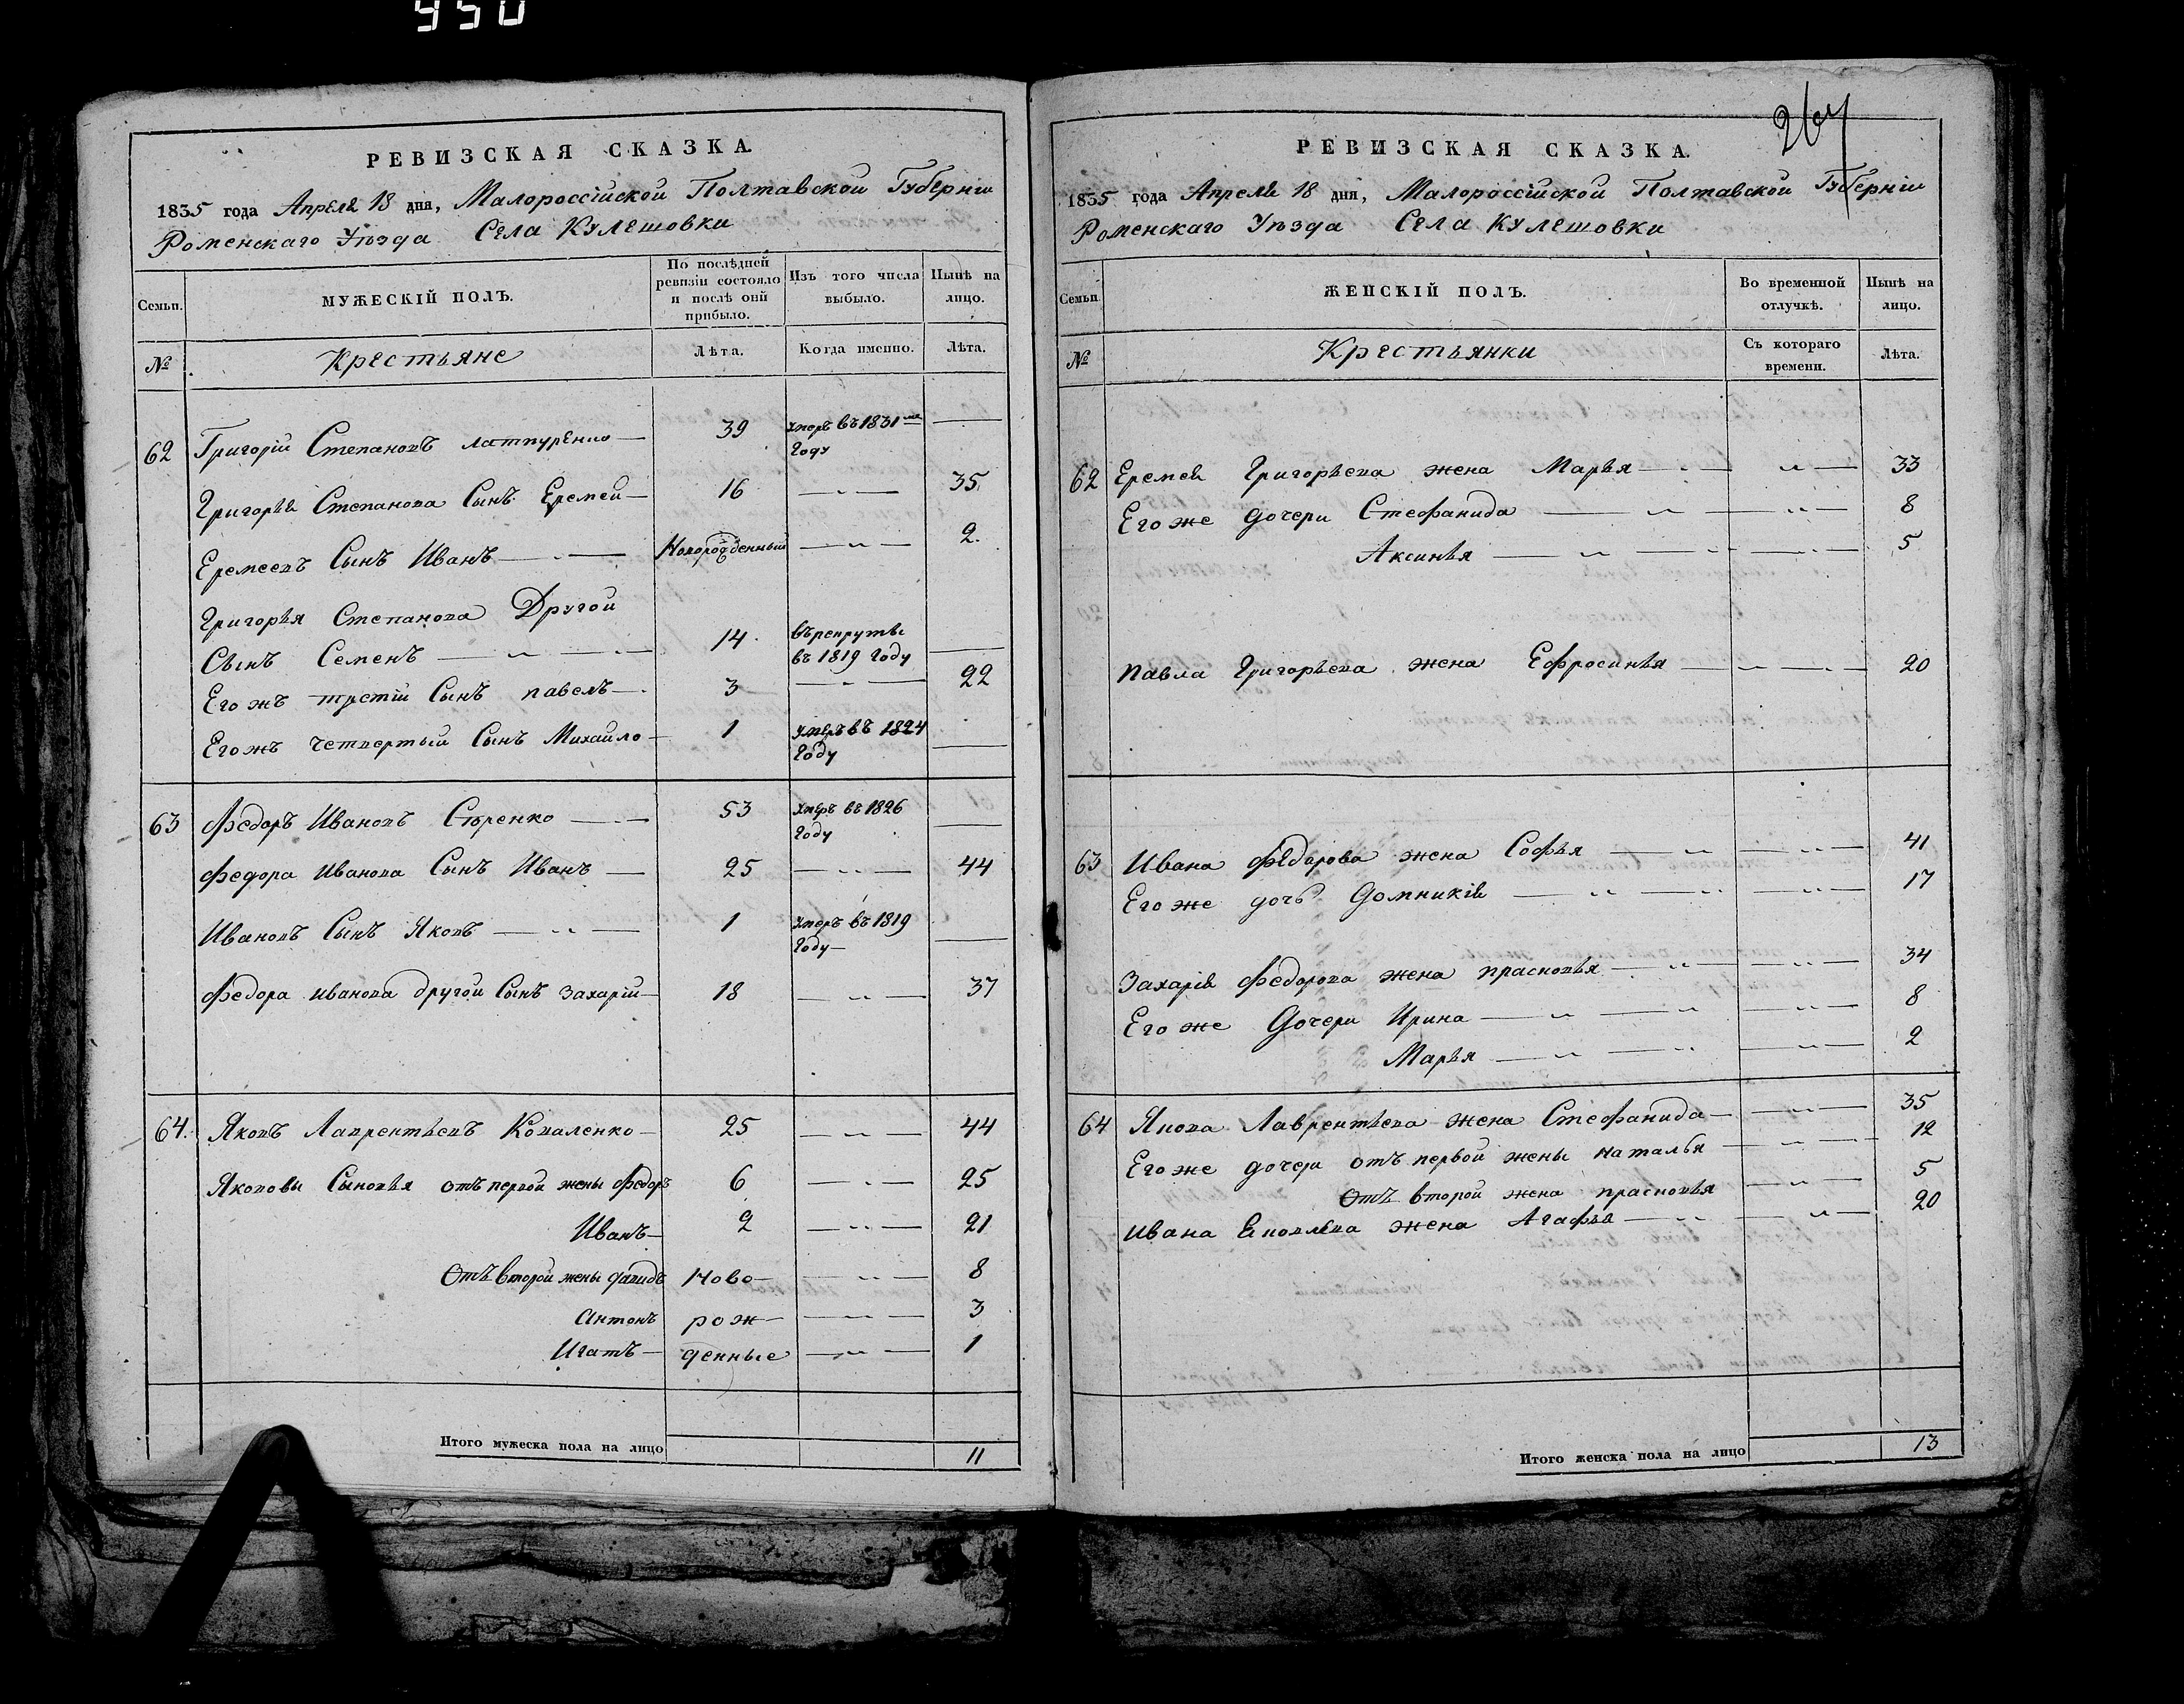 950
РЕВИЗСКАЯ СКАЗКА.
1835 года Апреля 18 дня, Малороссійской Полтавской Губерніи
Роменскаго Уѣзда Села Кулешовки
Семьи.
МУЖЕСКІЙ ПОЛЪ.
По послѣдней ревизіи состояло и послѣ оной прибыло.
Изъ того числа выбыло.
Нынѣ на лицо.
№
Крестьяне
Лѣта.
Когда именно.
Лѣта.
62 Григорій Степановъ — 39 умеръ въ 1831мъ Году —
Григорья Степанова Сынъ Еремей — 16 — 35
Еремеевъ Сынъ Иванъ — Новорожденный — 2.
Григорья Степанова Другой
Сынъ Семенъ — 14 въ рекруты въ 1819 Году —
Его жъ третій Сынъ павелъ — 3 — 22
Его жъ четвертый Сынъ Михайло — 1 умеръ въ 1824 Году —
63 Федоръ Ивановъ — 53 умеръ въ 1826 Году —
Федора Иванова Сынъ Иванъ — 25 — 44
Ивановъ Сынъ Яковъ — 1 умеръ въ 1819 Году —
Федора иванова другой Сынъ Захарій — 18 — 37
64. Яковъ Лаврентьевъ Коваленко — 25 — 44
Яковы Сыновья отъ первой жены Федоръ 6 — 25
Иванъ — 2 — 21
Отъ второй жены давидъ Ново — 8
Антонъ рож — 3
Игатъ — денные — 1
Итого мужеска пола на лицо 11
264
РЕВИЗСКАЯ СКАЗКА.
1835 года Апреля 18 дня, Малороссійской Полтавской Губерніи
Роменскаго Уѣзда Села Кулешовки
Семьи.
ЖЕНСКІЙ ПОЛЪ.
Во временной отлучкѣ.
Нынѣ на лицо.
№
Крестьянки
Съ котораго времени.
Лѣта.
62 Еремея Григорьева жена Марья — 33
Его же дочери Стефанида — 8
Аксинья — 5
Павла Григорьева жена Ефросинья — 20
63 Ивана Федорова жена Софья — 41
Его же дочь Домникія — 17
Захарія Федорова жена прасковья — 34
Его же Дочери Ирина — 8
Марья — 2
64 Якова Лаврентьева жена Стефанида — 35
Его же дочери отъ первой жены Наталья — 12
Отъ второй жена прасковья — 5
Ивана Яковлева жена Агафья — 20
Итого женска пола на лицо 13